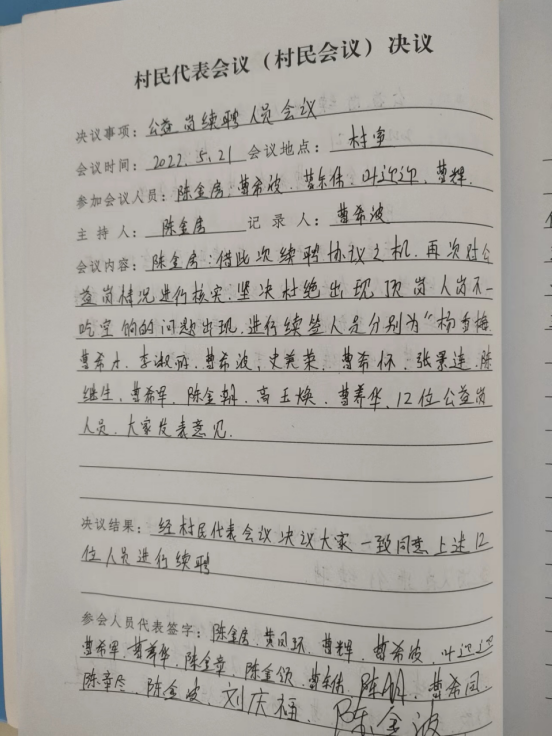 村民代表会议（村民会议）决议
决议事项：公益岗续聘人员会议
会议时间：2022.5.21 会议地点：村室
参加会议人员：陈金房、曹希波、曹东伟、叶迎迎、曹辉
主持人：陈金房 记录人：曹希波
会议内容：陈金房：借此次续聘协议之机，再次对公
益岗情况进行核实，坚决杜绝出现顶岗人岗不一
吃空饷的问题出现，进行续签人员分别为“杨香梅
曹希才、李淑丽、曹希波、史美荣、曹希怀、张景连、陈
继生、曹希军、陈金朝、高玉焕、曹善华，12位公益岗
人员，大家发表意见
决议结果：经村民代表会议决议大家一致同意上述12
位人员进行续聘
参会人员代表签字：陈金房、黄同环、曹辉、曹希波、叶迎迎
曹希军、曹善华、陈金章、陈金领、曹东伟、陈朋、曹希同、
陈金波、刘庆福、陈金波